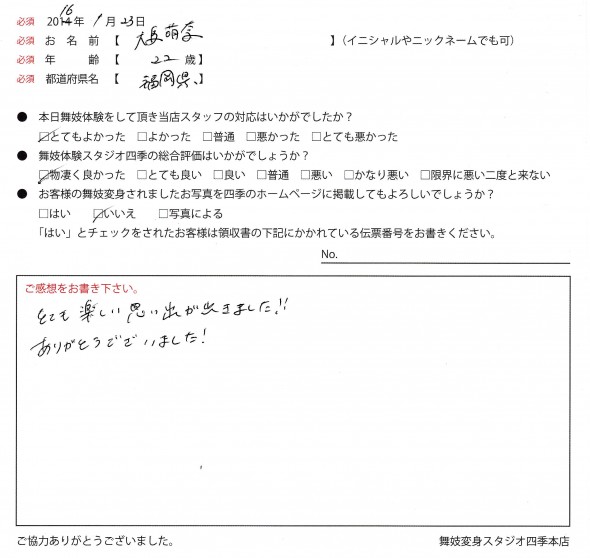 16
必須 2014年 1月23日
必須 お 名 前 【 大長萌奈 】（イニシャルやニックネームでも可）
必須 年 齢 【 22 歳】
必須 都道府県名 【 福岡県 】
● 本日舞妓体験をして頂き当店スタッフの対応はいかがでしたか？
□とてもよかった □よかった □普通 □悪かった □とても悪かった
● 舞妓体験スタジオ四季の総合評価はいかがでしょうか？
□物凄く良かった □とても良い □良い □普通 □悪い □かなり悪い □限界に悪い二度と来ない
● お客様の舞妓変身されましたお写真を四季のホームページに掲載してもよろしいでしょうか？
□はい □いいえ □写真による
「はい」とチェックをされたお客様は領収書の下記にかかれている伝票番号をお書きください。
No.
ご感想をお書き下さい。
とても楽しい思い出が出きました!!
ありがとうございました!
ご協力ありがとうございました。 舞妓変身スタジオ四季本店